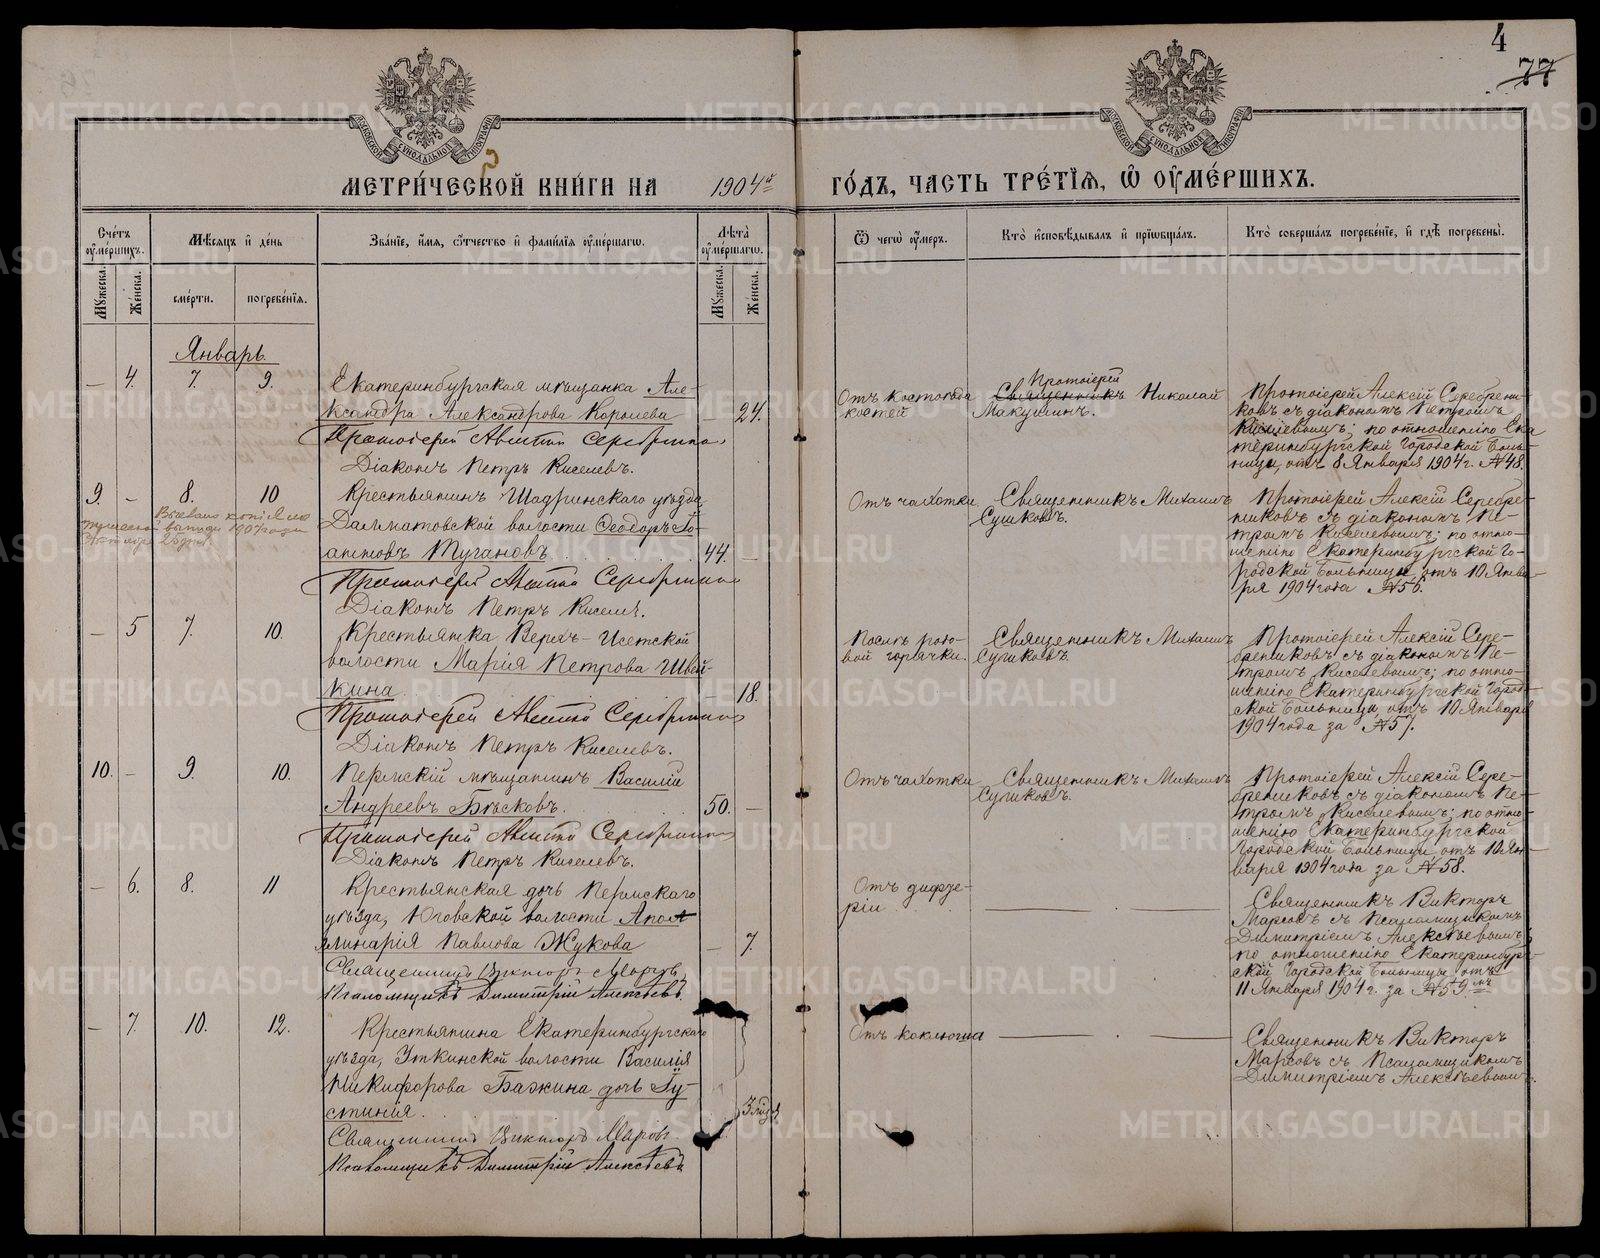 4
77
МОСКОВСКОЙ СѴНОДАЛЬНОЙ ТИПОГРАФІИ
МОСКОВСКОЙ СѴНОДАЛЬНОЙ ТИПОГРАФІИ
МЕТРИ́ЧЕСКОЙ КНИ́ГИ НА 1904й ГО́ДЪ, ЧАСТЬ ТРЕ́ТІѦ, Ѽ ОУМЕ́РШИХЪ.
Сче́тъ оумершихъ.
Мѣсяцъ и́ де́нь
Зва́нїе, и́мя, о́тчество и́ фами́лїя оуме́ршаго.
Лѣта̀ оуме́ршаго.
Ѿ чегѡ̀ оу́меръ.
Кто̀ и҆сповѣ́дывалъ и҆ прїѡбща́лъ.
Кто̀ соверша́лъ погребе́нїе, и҆ гдѣ̀ погребены̀.
Мужеска.
Женска.
сме́рти.
погребе́нїя.
Мужеска.
Женска.
Январь.
— 4. 7. 9.
Екатеринбургская мѣщанка Але-
ксандра Александрова Королева — 24.
Протоіерей Алексій Серебрениковъ
Діаконъ Петръ Киселевъ.
Отъ костоѣда
костей
Протоіерей
Священникъ Николай
Макушинъ.
Протоіерей Алексій Серебрени-
ковъ съ діакономъ Петромъ
Киселевымъ; по отношенію Ека
теринбургской Городской Боль-
ницы, отъ 8 Января 1904 г. № 48.
9. — 8. 10
Крестьянинъ Шадринскаго уѣзда,
Далматовской волости Ѳеодоръ Іо-
анновъ Тугановъ 44. —
Протоіерей Алексій Серебрениковъ
Діаконъ Петръ Киселевъ.
1907 года
Отъ чахотки
Священникъ Михаилъ
Сушковъ.
Протоіерей Алексій Серебре-
никовъ съ діакономъ Пе-
тромъ Киселевымъ; по отно-
шенію Екатеринбургской Го-
родской Больницы отъ 10 Янва-
ря 1904 года № 56.
— 5 7. 10.
Крестьянка Верхъ-Исетской
волости Марія Петрова Швей-
кина — 18.
Протоіерей Алексій Серебрениковъ
Діаконъ Петръ Киселевъ.
Послѣ родо-
вой горячки.
Священникъ Михаилъ
Сушковъ.
Протоіерей Алексій Сере-
брениковъ съ діакономъ Пе-
тромъ Киселевымъ; по отно-
шенію Екатеринбургской Город-
ской Больницы, отъ 10 Января
1904 года за № 57.
10. — 9. 10.
Пермскій мѣщанинъ Василій
Андреевъ Бѣсковъ. 50. —
Протоіерей Алексій Серебрениковъ
Діаконъ Петръ Киселевъ.
Отъ чахотки
Священникъ Михаилъ
Сушковъ.
Протоіерей Алексій Сере-
брениковъ съ діакономъ Пе-
тромъ Киселевымъ; по отно-
шенію Екатеринбургской
Городской Больницы отъ 10 Ян-
варя 1904 года за № 58.
— 6. 8. 11
Крестьянская дочь Пермскаго
уѣзда, Юговской волости Апол
линарія Павлова Жукова — 7.
Священникъ Викторъ Марсовъ
Псаломщикъ Димитрій Алексѣевъ.
Отъ дифте-
ріи
Священникъ Викторъ
Марсовъ съ Псаломщикомъ
Димитріемъ Алексѣевымъ;
по отношенію Екатеринбург-
ской Городской Больницы отъ
11 Января 1904 г. за № 59.
— 7. 10. 12.
Крестьянина Екатеринбургскаго
уѣзда, Уткинской волости Василія
Никифорова Бажина дочь Іу-
стинія 3 года
Священникъ Викторъ Марсовъ.
Псаломщикъ Димитрій Алексѣевъ
Отъ коклюша
Священникъ Викторъ
Марсовъ съ Псаломщикомъ
Димитріемъ Алексѣевымъ.
METRIKI.GASO-URAL.RU